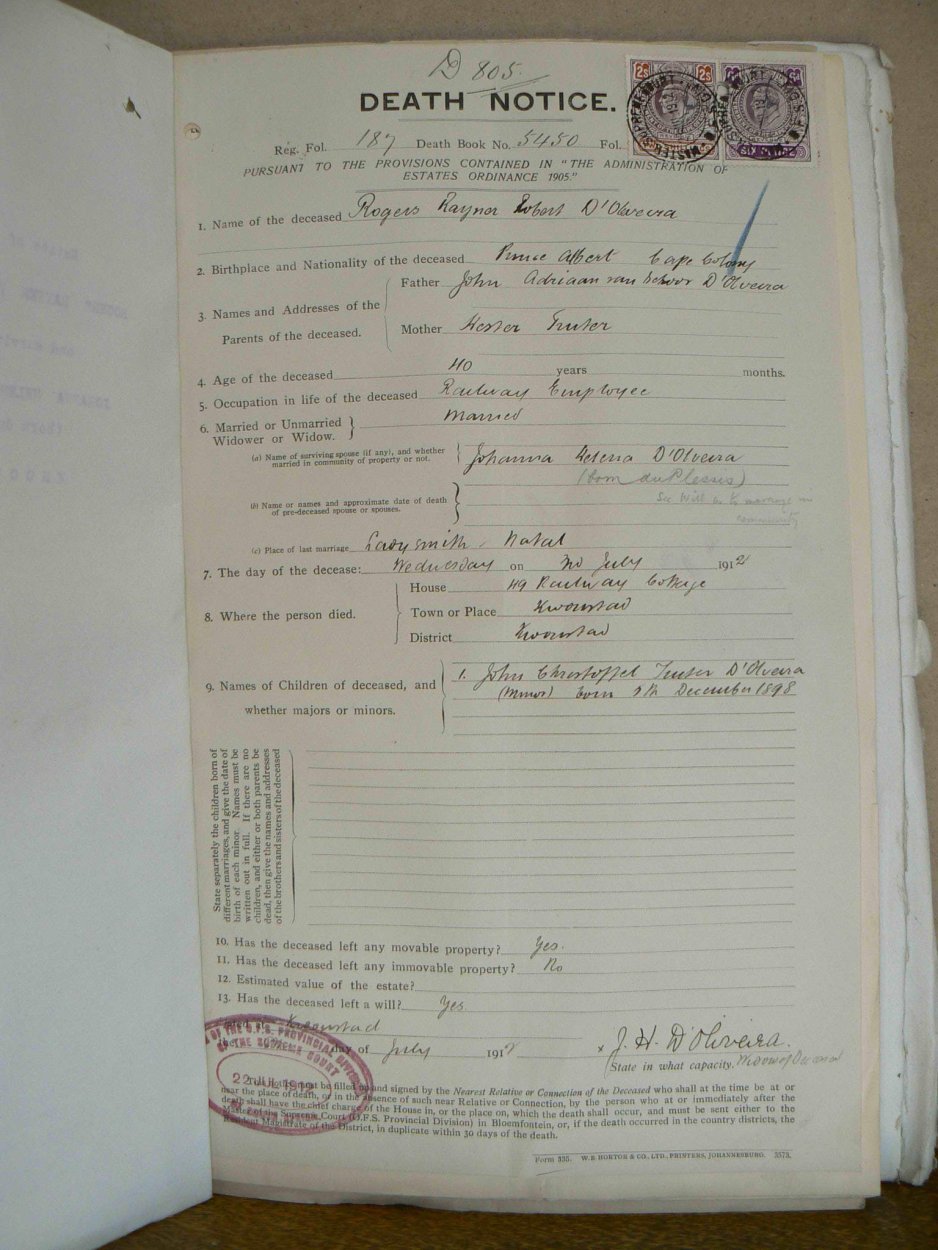 D 805.
DEATH NOTICE.
2s 2s
6d
SIX PENCE
Reg. Fol. 187 Death Book No. 5450 Fol.
PURSUANT TO THE PROVISIONS CONTAINED IN "THE ADMINISTRATION OF
ESTATES ORDINANCE 1905."
1. Name of the deceased Rogers Rayner Robert D'Oliveira
2. Birthplace and Nationality of the deceased Prince Albert Cape Colony
3. Names and Addresses of the Parents of the deceased.
Father John Adriaan van Schoor D'Oliveira
Mother Hester Truter
4. Age of the deceased 40 years months.
5. Occupation in life of the deceased Railway Employee
6. Married or Unmarried Widower or Widow. Married
(a) Name of surviving spouse (if any), and whether married in community of property or not. Johanna Helena D'Oliveira
(born du Plessis)
See Will as to marriage in
community
(b) Name or names and approximate date of death of pre-deceased spouse or spouses.
(c) Place of last marriage Ladysmith - Natal
7. The day of the decease: Wednesday on 3rd July 1912
8. Where the person died.
House 49 Railway Cottage
Town or Place Kroonstad
District Kroonstad
9. Names of Children of deceased, and whether majors or minors.
1. John Christoffel Truter D'Oliveira
(Minor) born December 1898
State separately the children born of
different marriages, and give the date of
birth of each minor. Names must be
written out in full. If there are no
children, and either or both parents be
dead, then give the names and addresses
of the brothers and sisters of the deceased
10. Has the deceased left any movable property? Yes.
11. Has the deceased left any immovable property? No
12. Estimated value of the estate?
13. Has the deceased left a will? Yes
Dated at Kroonstad
day of July 1912
x J. H. D'Oliveira.
State in what capacity. Widow of Deceased
OF THE O.F.S. PROVINCIAL DIVISION
OF THE SUPREME COURT
22 JUL 1912
must be filled up and signed by the Nearest Relative or Connection of the Deceased who shall at the time be at or
near the place of death, or in the absence of such near Relative or Connection, by the person who at or immediately after the
death shall have the chief charge of the House in, or the place on, which the death shall occur, and must be sent either to the
Master of the Supreme Court (O.F.S. Provincial Division) in Bloemfontein, or, if the death occurred in the country districts, the
Resident Magistrate of the District, in duplicate within 30 days of the death.
Form 335. W. E. HORTOR & CO., LTD., PRINTERS, JOHANNESBURG. 3573.